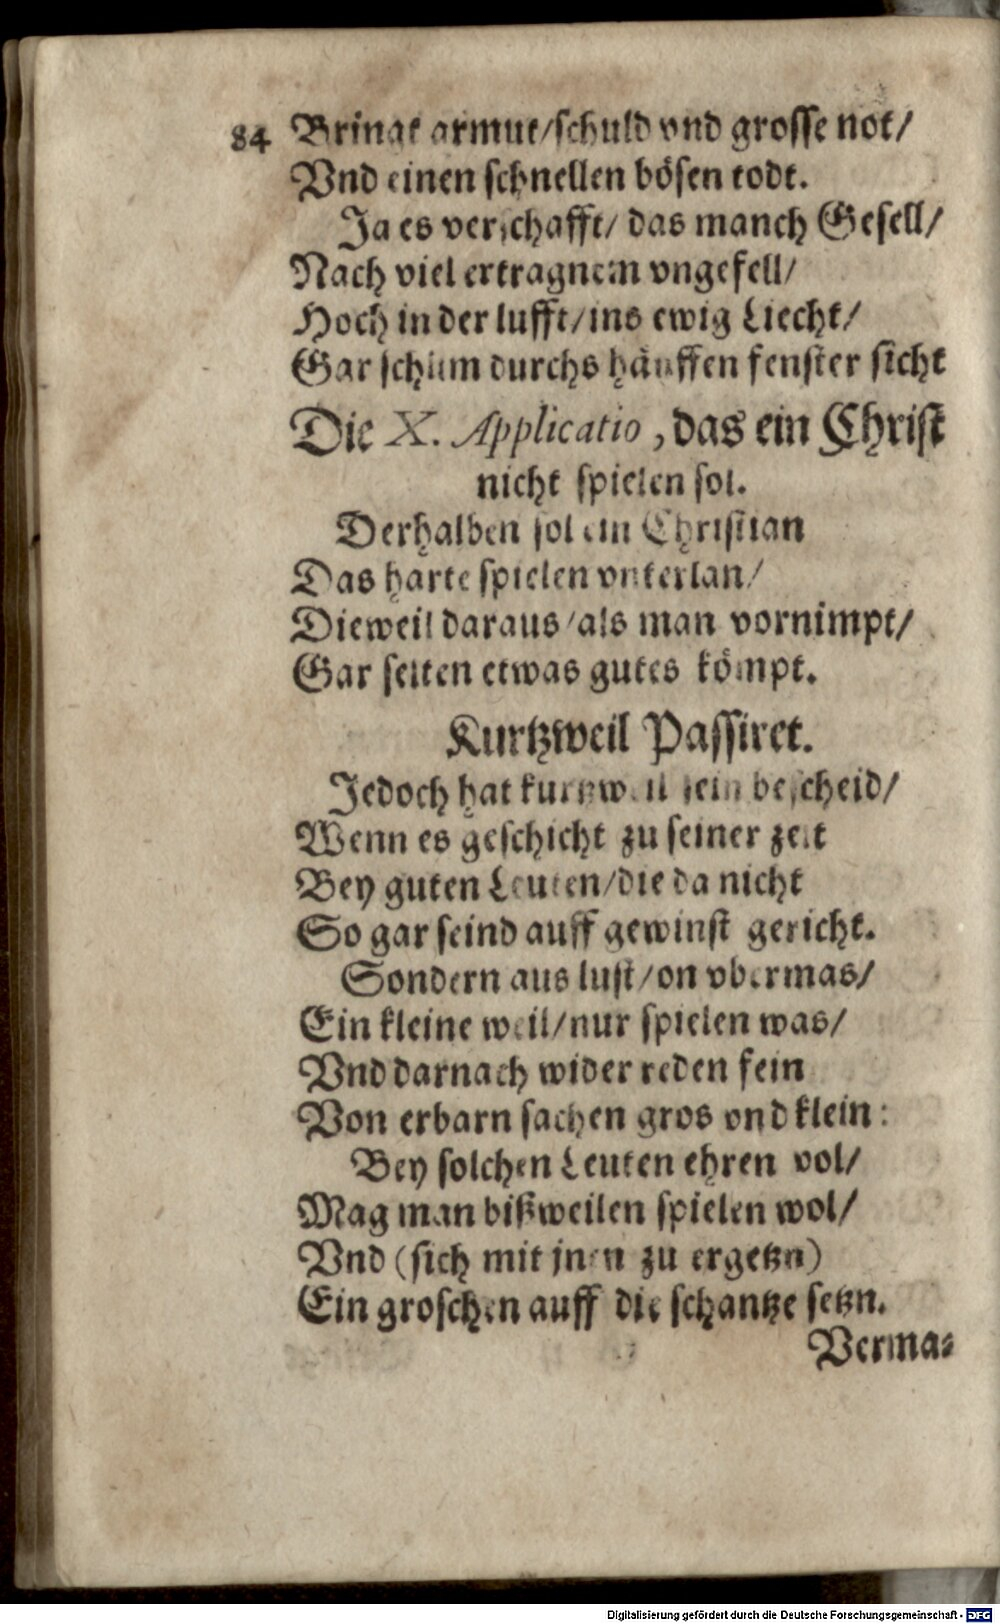 84 Bringt armut/schuld vnd grosse not/
Vnd einen schnellen bösen todt.
Ja es verschafft/ das manch Gesell/
Nach viel ertragnem vngefell/
Hoch in der lufft/ins ewig Liecht/
Gar schlim durchs häuffen fenster sicht
Die X. Applicatio, das ein Christ
nicht spielen sol.
Derhalben sol ein Christian
Das harte spielen vnterlan/
Dieweil daraus/als man vornimpt/
Gar selten etwas gutes kömpt.
Kurtzweil Passiret.
Jedoch hat kurtzweil sein bescheid/
Wenn es geschicht zu seiner zeit
Bey guten Leuten/die da nicht
So gar seind auff gewinst gericht.
Sondern aus lust/on vbermas/
Ein kleine weil/nur spielen was/
Vnd darnach wider reden fein
Von erbarn sachen gros vnd klein:
Bey solchen Leuten ehren vol/
Mag man bißweilen spielen wol/
Vnd (sich mit jnen zu ergetzn)
Ein groschen auff die schantze setzn.
Verma-
Digitalisierung gefördert durch die Deutsche Forschungsgemeinschaft - DFG